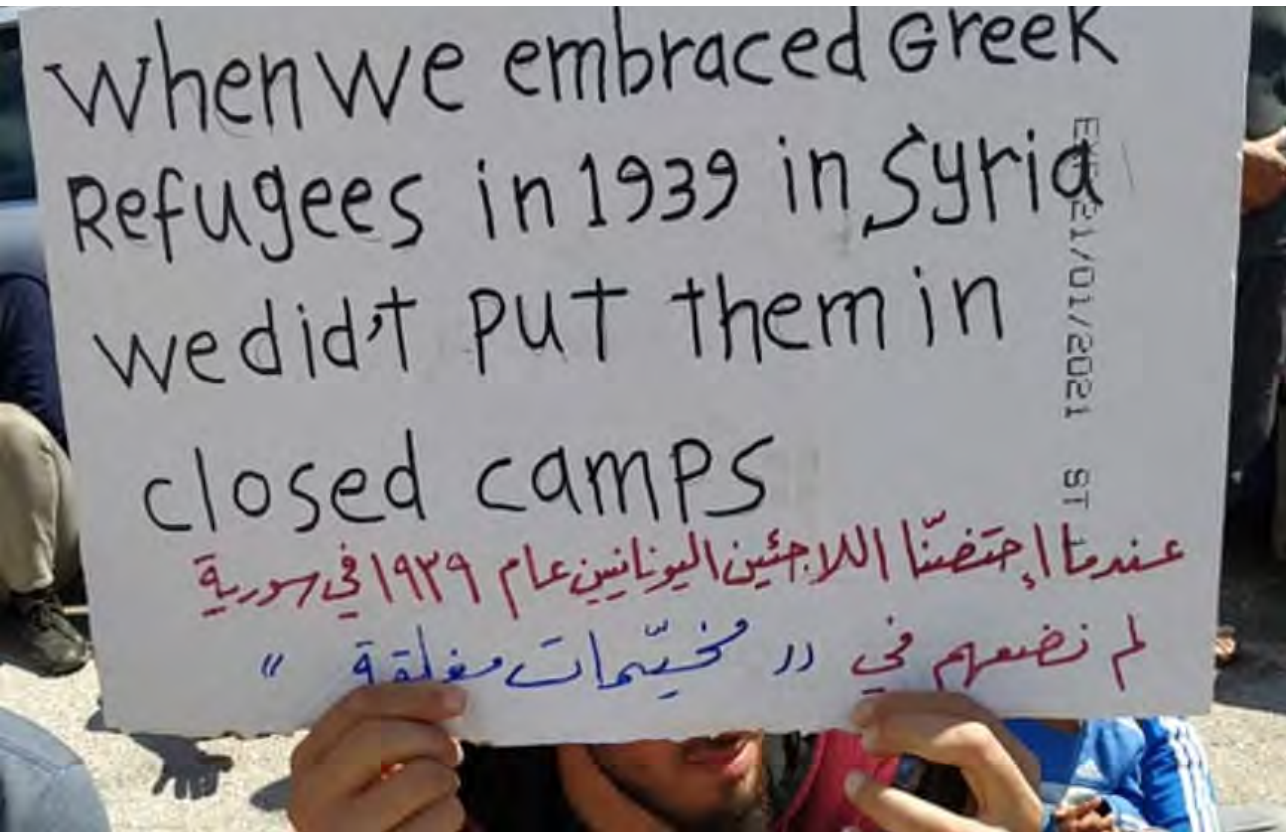 When we embraced Greek
Refugees in 1939 in Syria
we did't put them in
closed camps
عندما إحتضنّا اللاجئين اليونانيين عام ١٩٣٩ في سورية
لم نضعهم في " مخيّمات مغلقة "
21/01/2021 ST